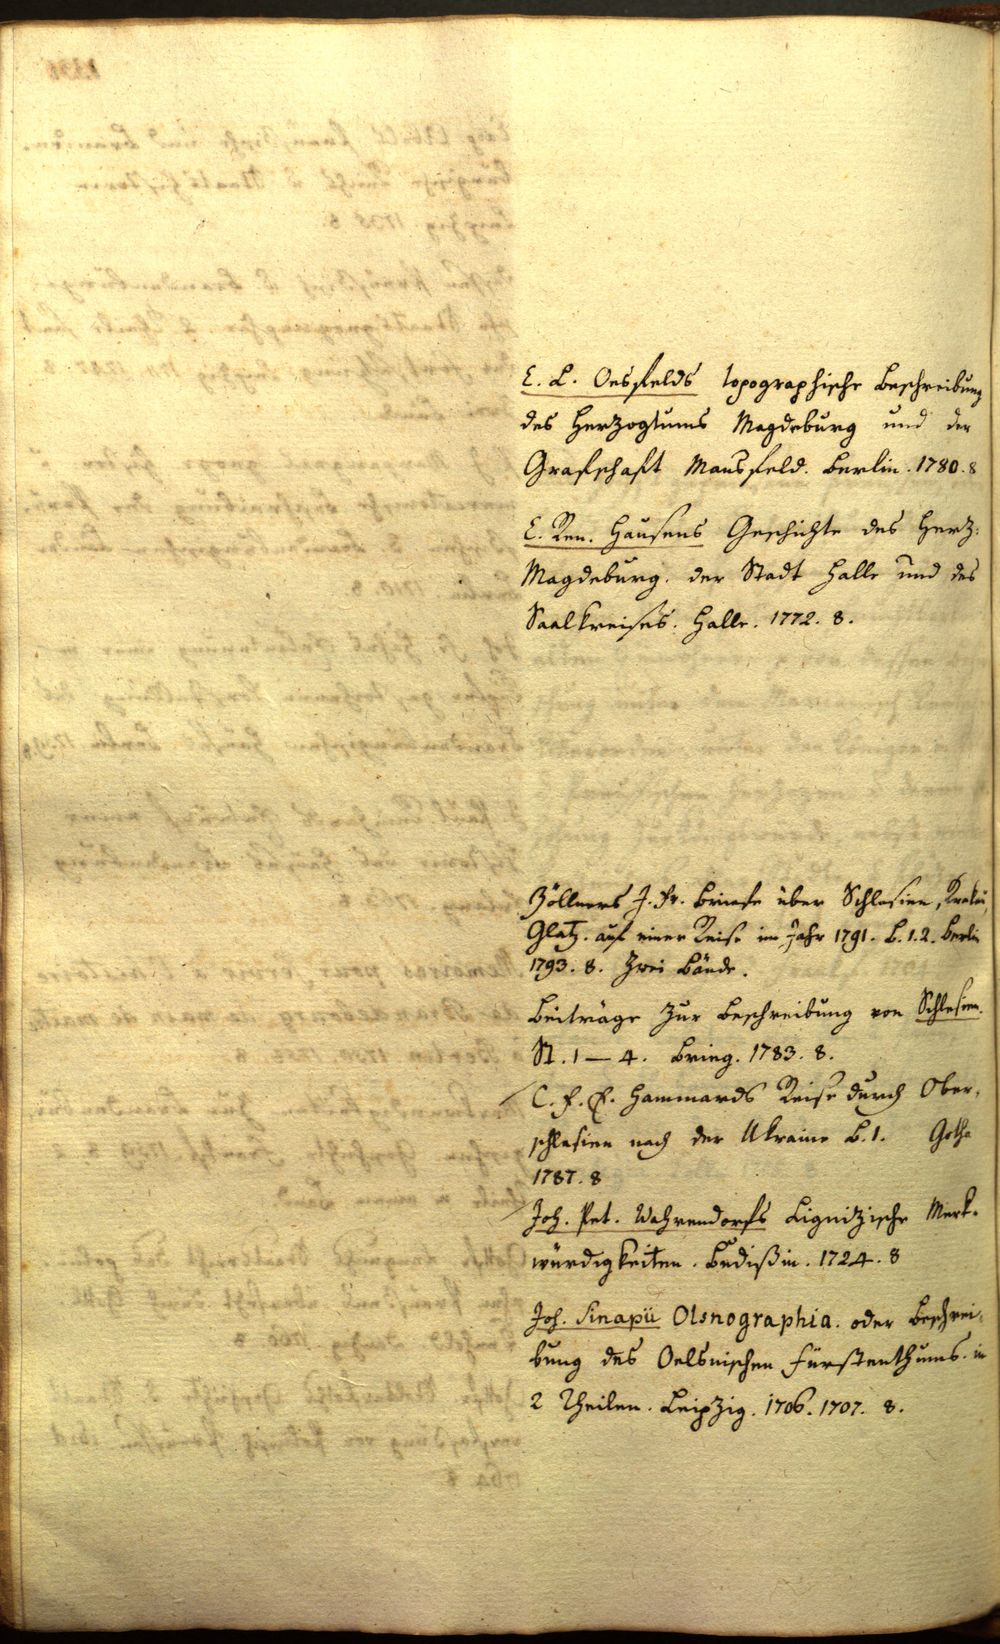 E. L. Oesfelds topographische Beschreibung
des Herzogtums Magdeburg und der
Grafschaft Mansfeld. Berlin. 1780. 8
C. Ren. Hausens Geschichte des Herz:
Magdeburg. der Stadt Halle und des
Saalkreises. Halle. 1772. 8.
Zöllners J. Fr. Briefe über Schlesien, Krakau,
Glatz. auf einer Reise im Jahr 1791. B. 1. 2. Berlin
1793. 8. Zwei Bände.
Beiträge zur Beschreibung von Schlesien.
St. 1 — 4. Brieg. 1783. 8.
C. F. E. Hammards Reise durch Ober-
schlesien nach der Ukraine B. 1. Gotha
1787. 8
Joh. Pet. Wahrendorfs Lignitzische Merk-
würdigkeiten. Budißin. 1724. 8
Joh. Sinapii Olsnographia. oder Beschrei-
bung des Oelsnischen Fürstenthums. in
2 Theilen. Leipzig. 1706. 1707. 8.